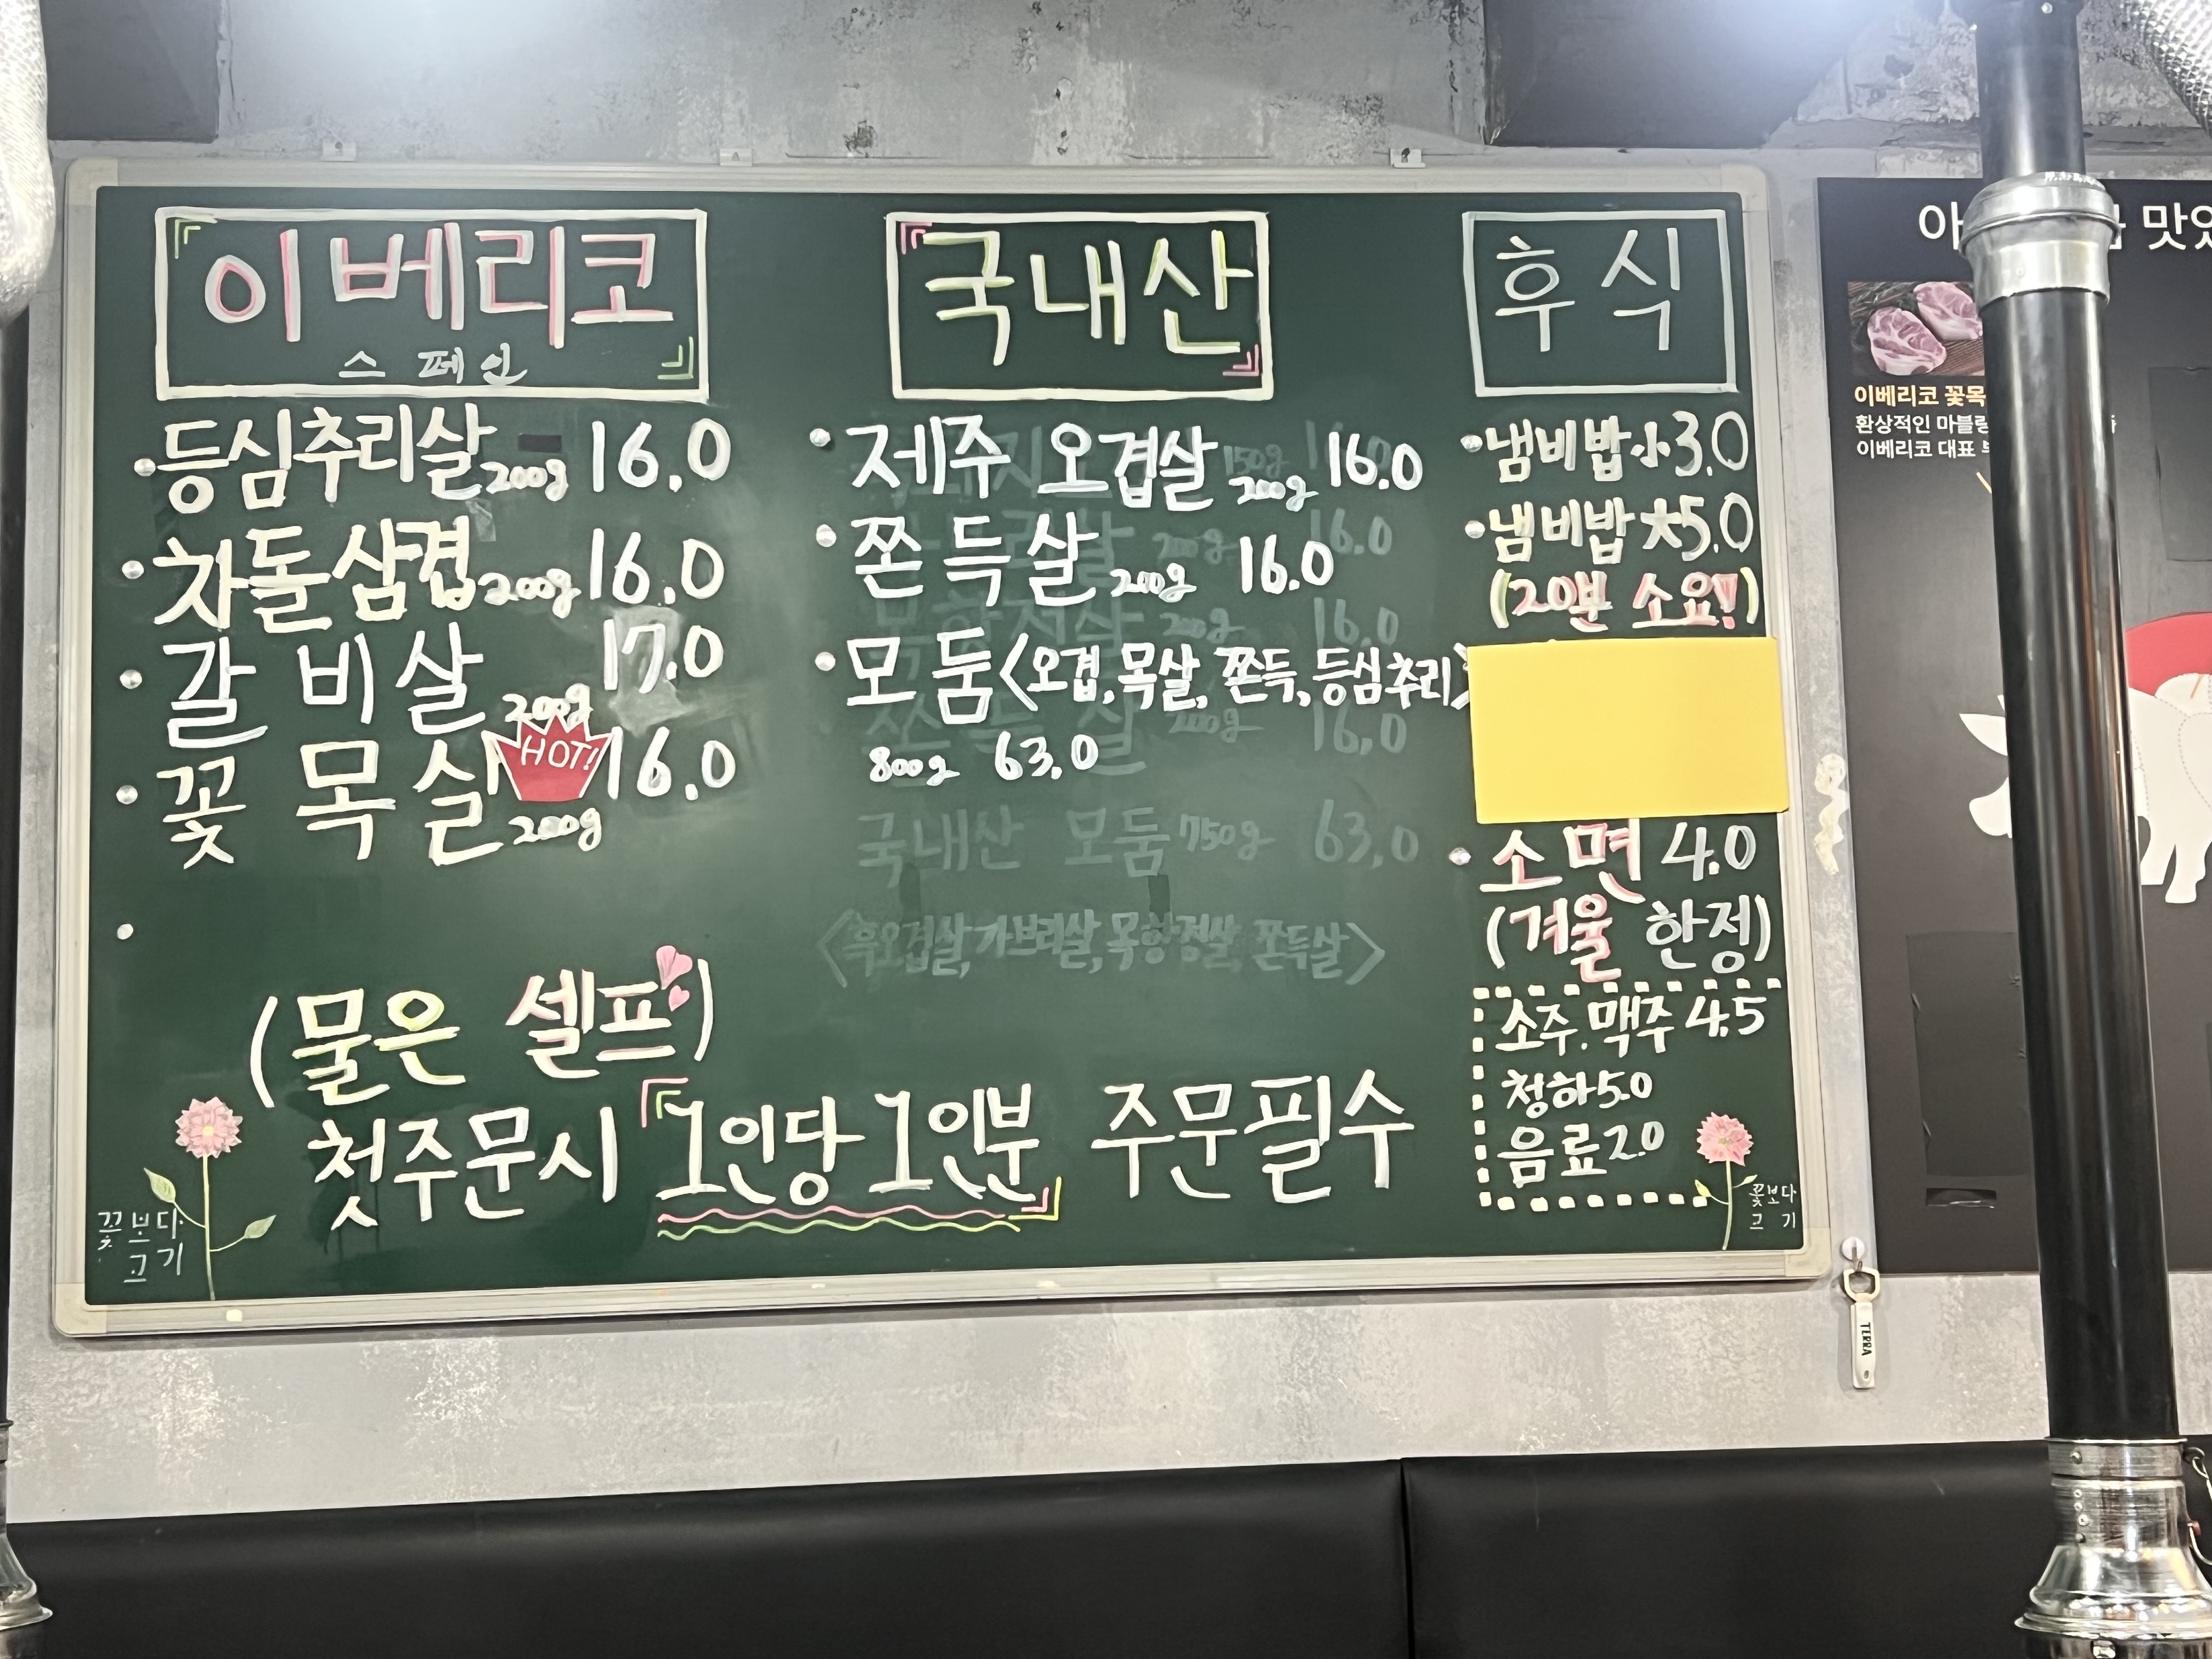 이베리코
스페인
등심추리살 200g 16.0
차돌삼겹 200g 16.0
갈비살 200g 17.0
꽃목살 HOT! 200g 16.0
(물은 셀프)
국내산
제주 오겹살 200g 16.0
쫀득살 200g 16.0
모둠<오겹, 목살, 쫀득, 등심추리>
800g 63.0
국내산 모둠 750g 63.0
<흑오겹살, 가브리살, 목항정살, 쫀득살>
후식
냄비밥 小 3.0
냄비밥 大 5.0
(20분 소요!)
소면 4.0
(겨울 한정)
소주.맥주 4.5
청하 5.0
음료 2.0
첫주문시 1인당 1인분 주문필수
꽃보다
고기
꽃보다
고기
맛있
이베리코 꽃목
환상적인 마블링
이베리코 대표
TERRA